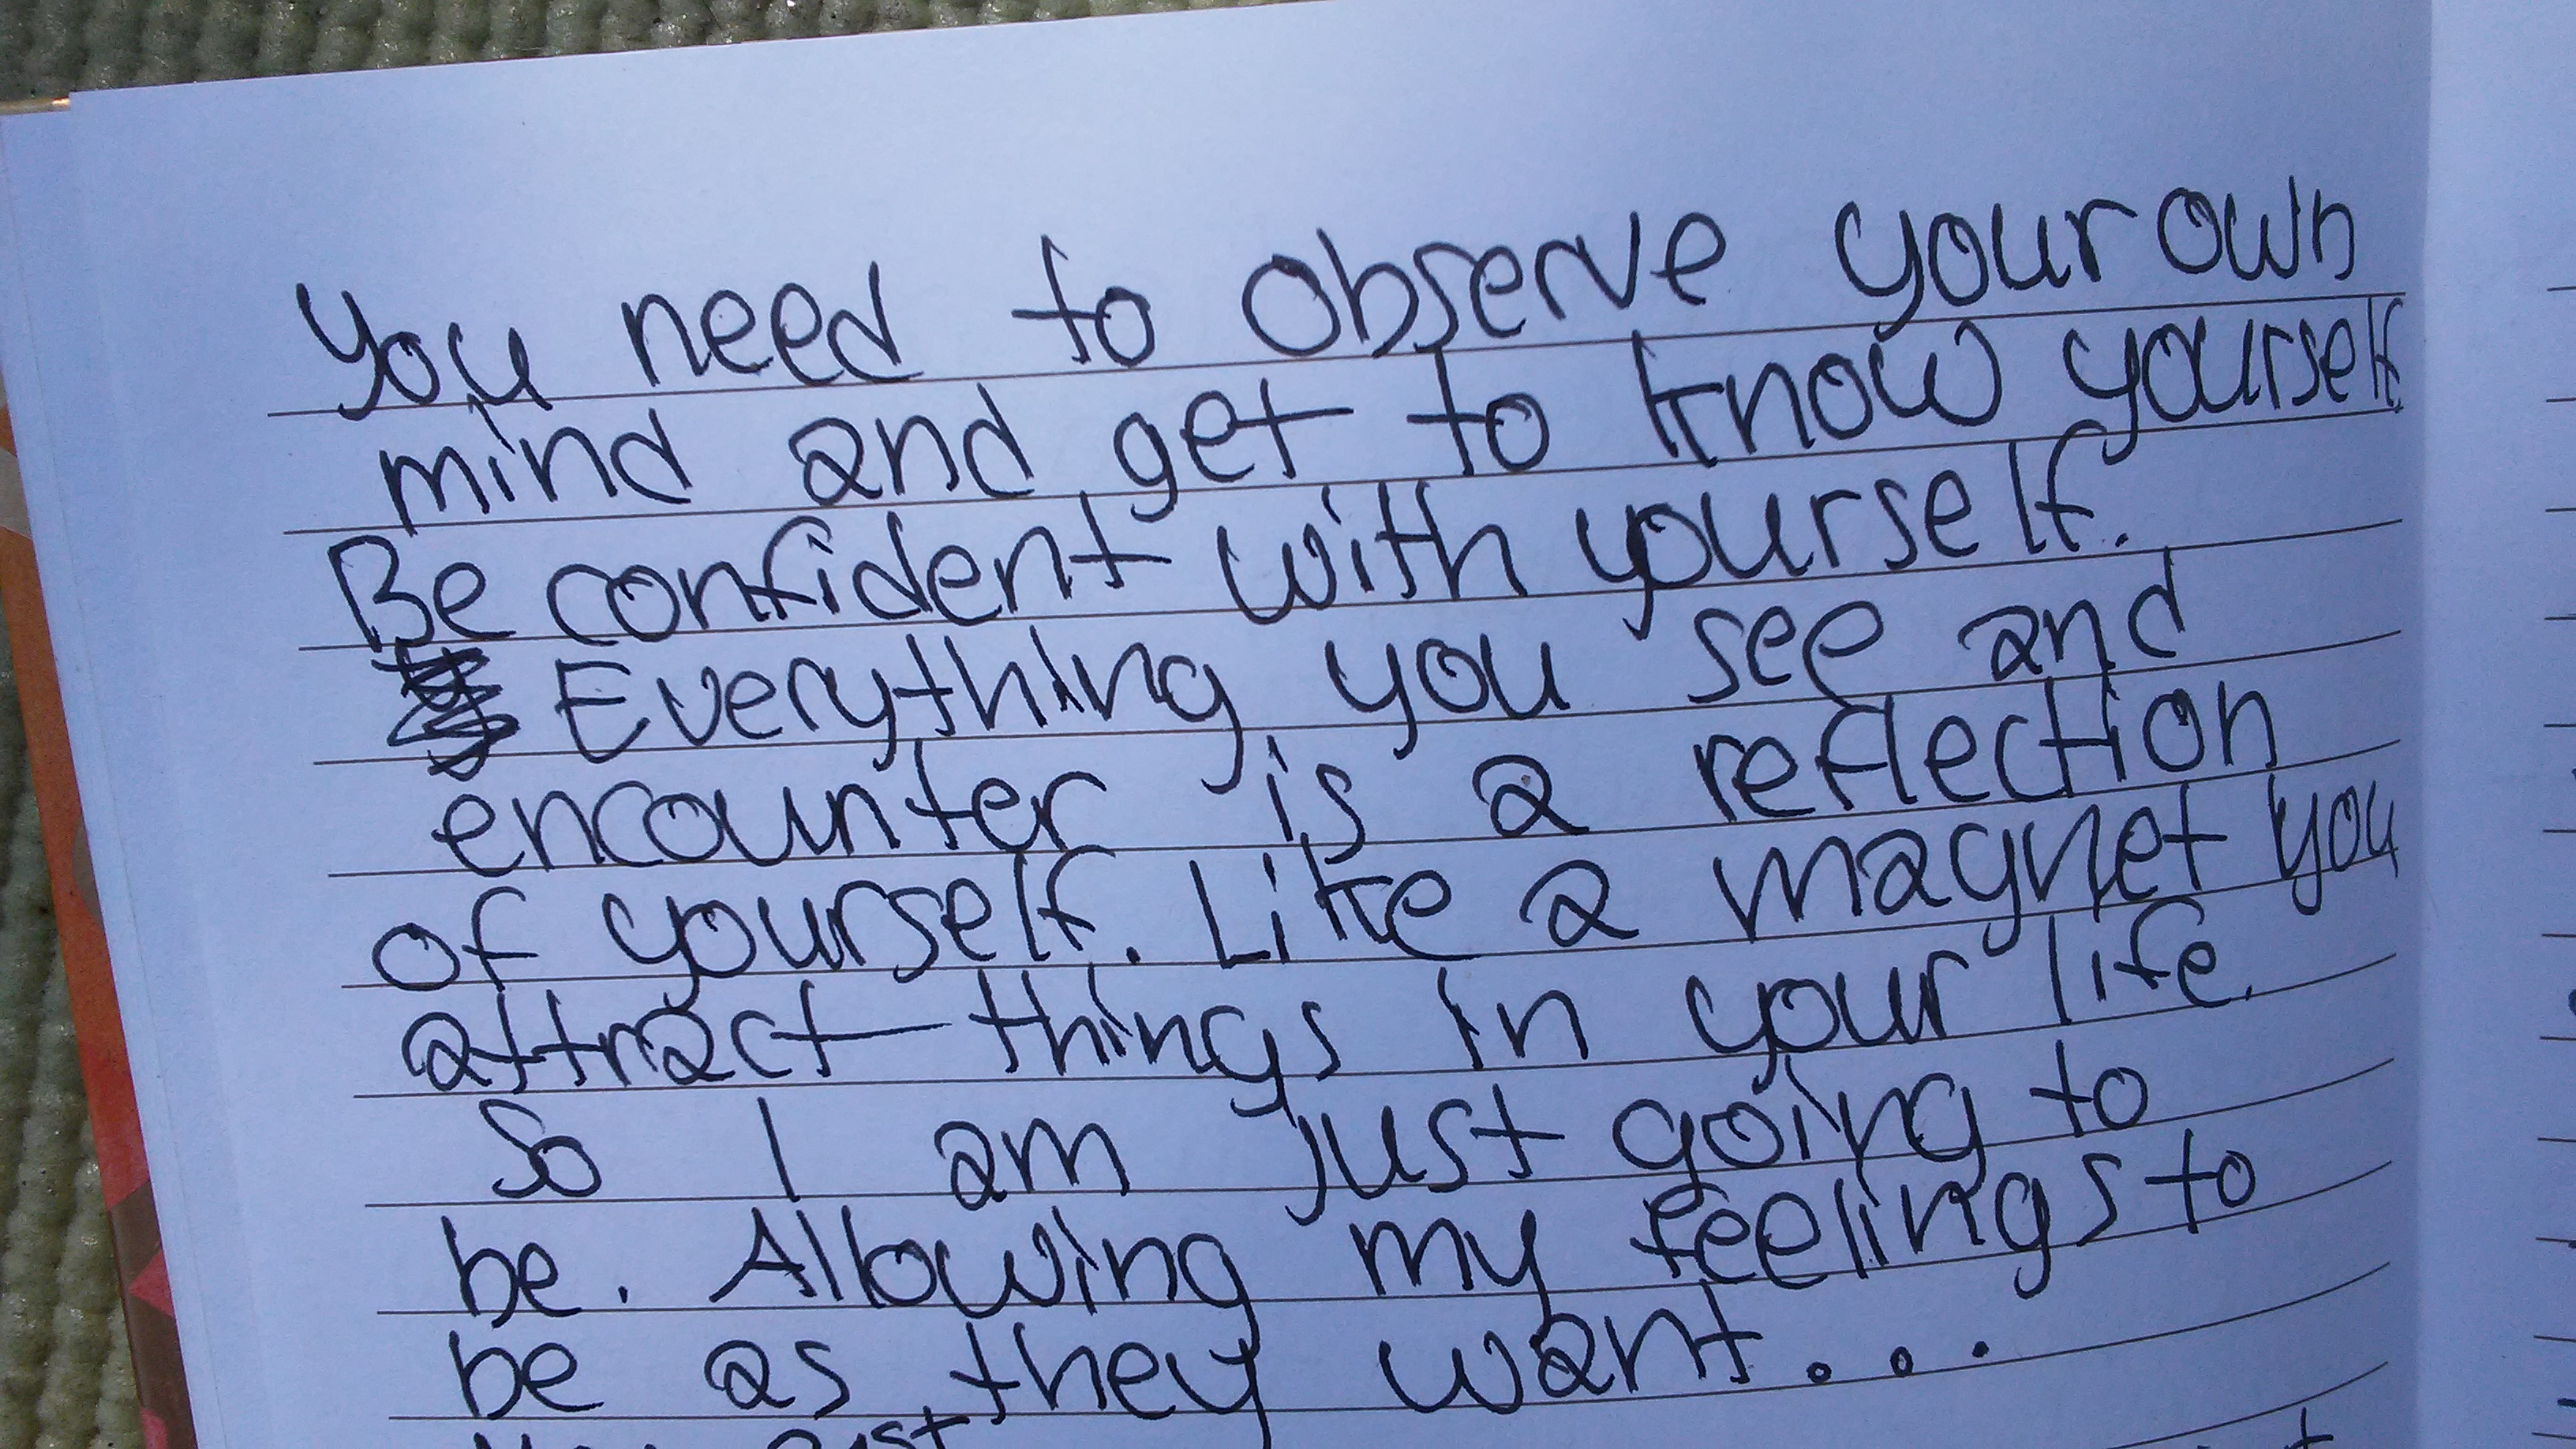 You need to observe your own
mind and get to know yourself.
Be confident with yourself.
Everything you see and
encounter is a reflection
of yourself. Like a magnet you
attract things in your life.
So I am just going to
be. Allowing my feelings to
be as they want...